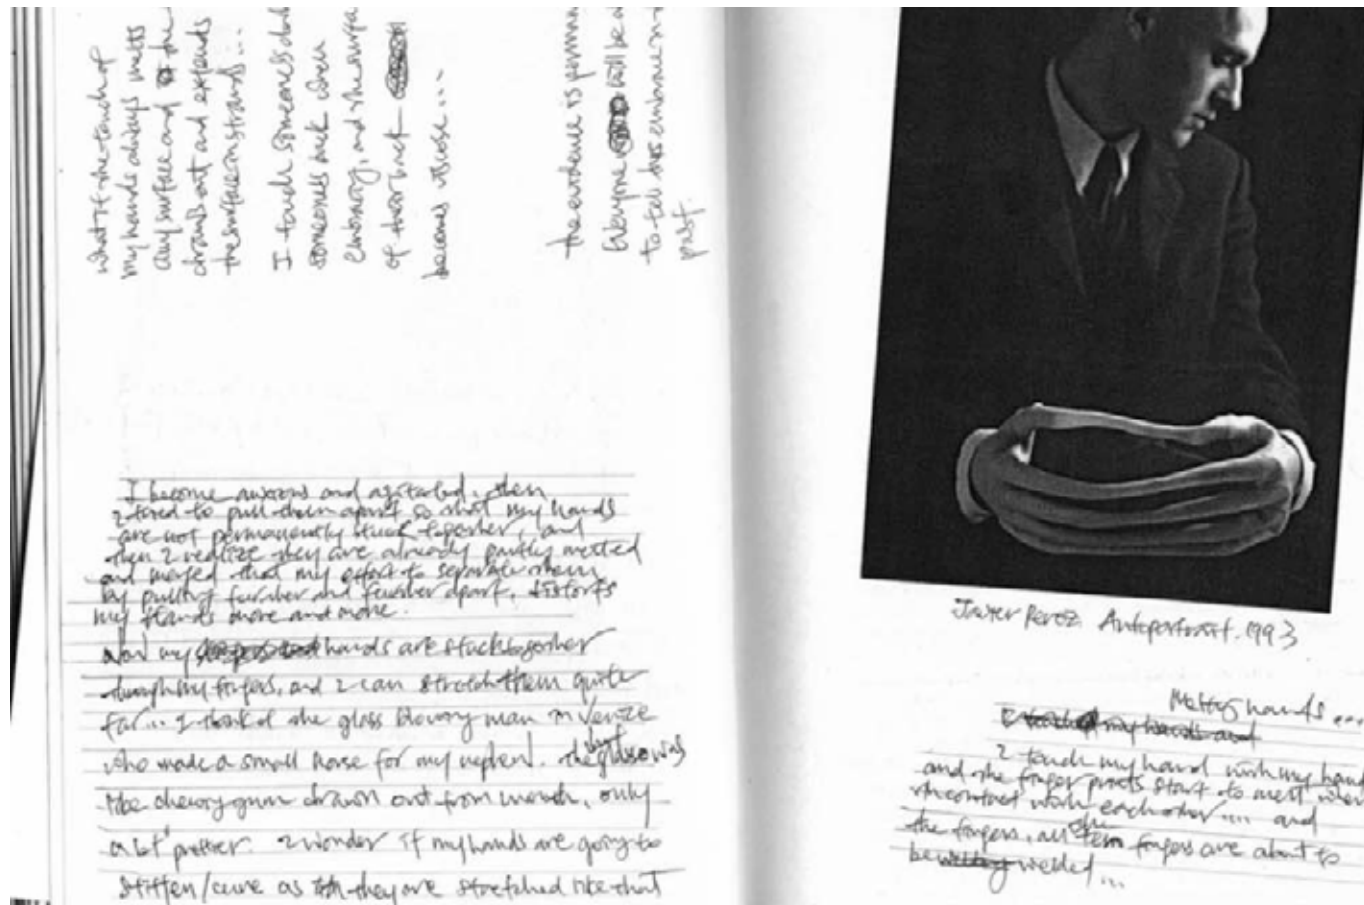 what if the touch of
my hands always melts
any surface and the
draws out and extends
the surface in strands...
I touch someone's
someone's back when
embracing, and the surface
of their back
becomes viscose...
the evidence is
Everyone will be
to tell his embrace
past.
I become anxious and agitated, then
I tried to pull them apart so that my hands
are not permanently stuck together, and
then I realize they are already partly melted
and merged that my effort to separate them
by pulling further and further apart, distorts
my hands more and more.
Now my hands are stuck together
through my fingers, and I can stretch them quite
far... I think of the glass blowing man in Venize
who made a small horse for my nephew. the hot glass was
like chewing gum drawn out from mouth, only
a lot prettier. I wonder if my hands are going to
stiffen/cure as they are stretched like that
Javier Perez. Autoportrait. 1993
Melting hands...
my hands and
I touch my hand with my hand
and the finger prints start to melt when
in contact with each other.... and
the fingers, all the ten fingers are about to
be welded...